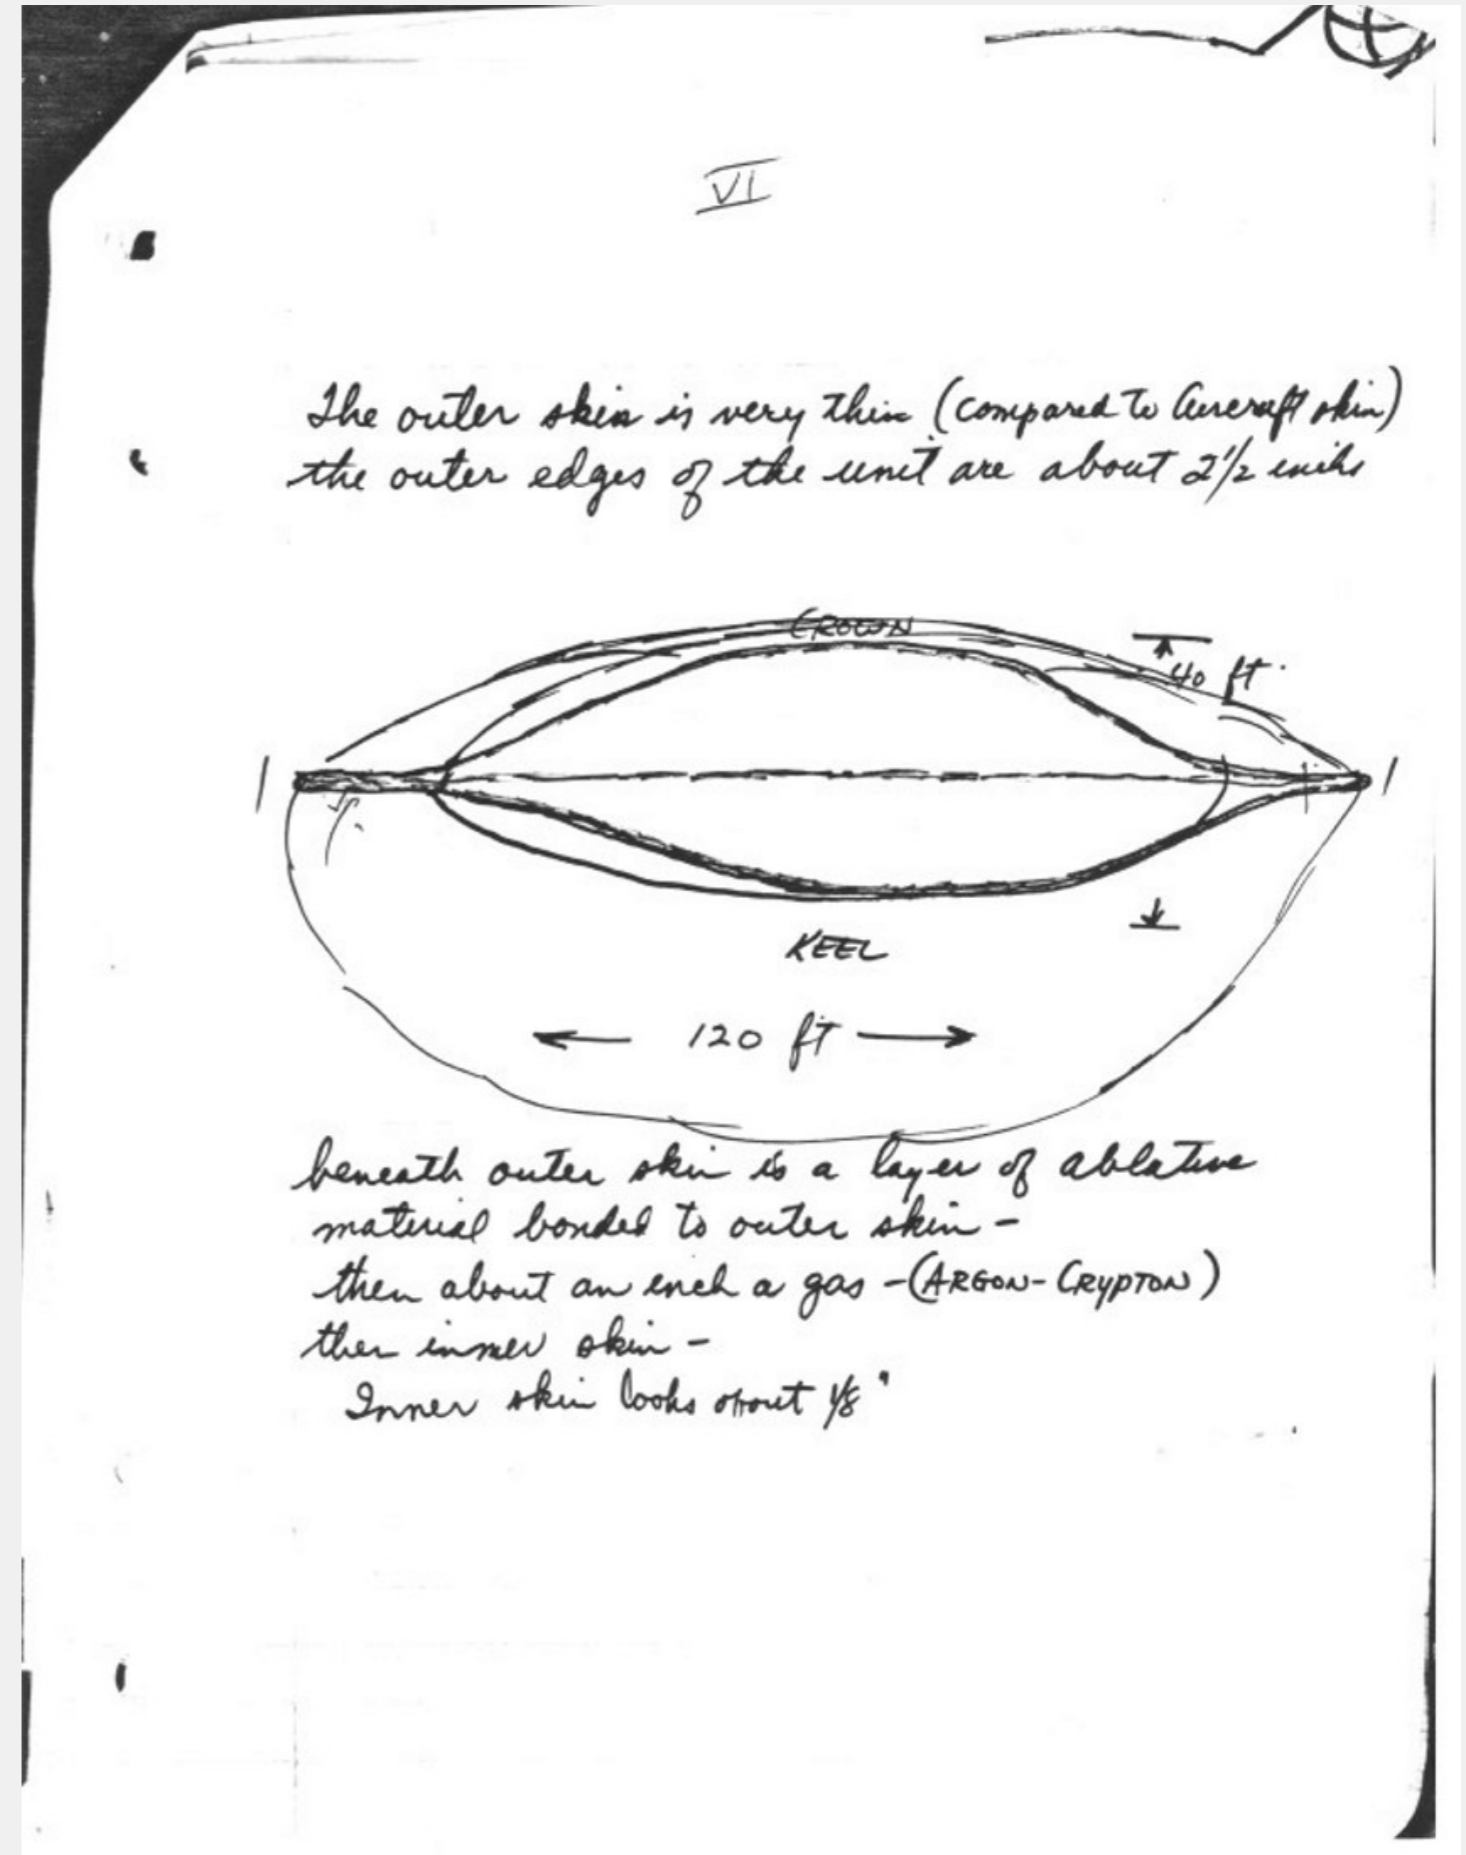 VI
The outer skin is very thin (compared to Aircraft skin)
the outer edges of the unit are about 2 1/2 inches
CROWN
40 ft.
1 1
KEEL
120 ft
beneath outer skin is a layer of ablative
material bonded to outer skin -
then about an inch a gas - (ARGON - CRYPTON)
then inner skin -
Inner skin looks about 1/8"